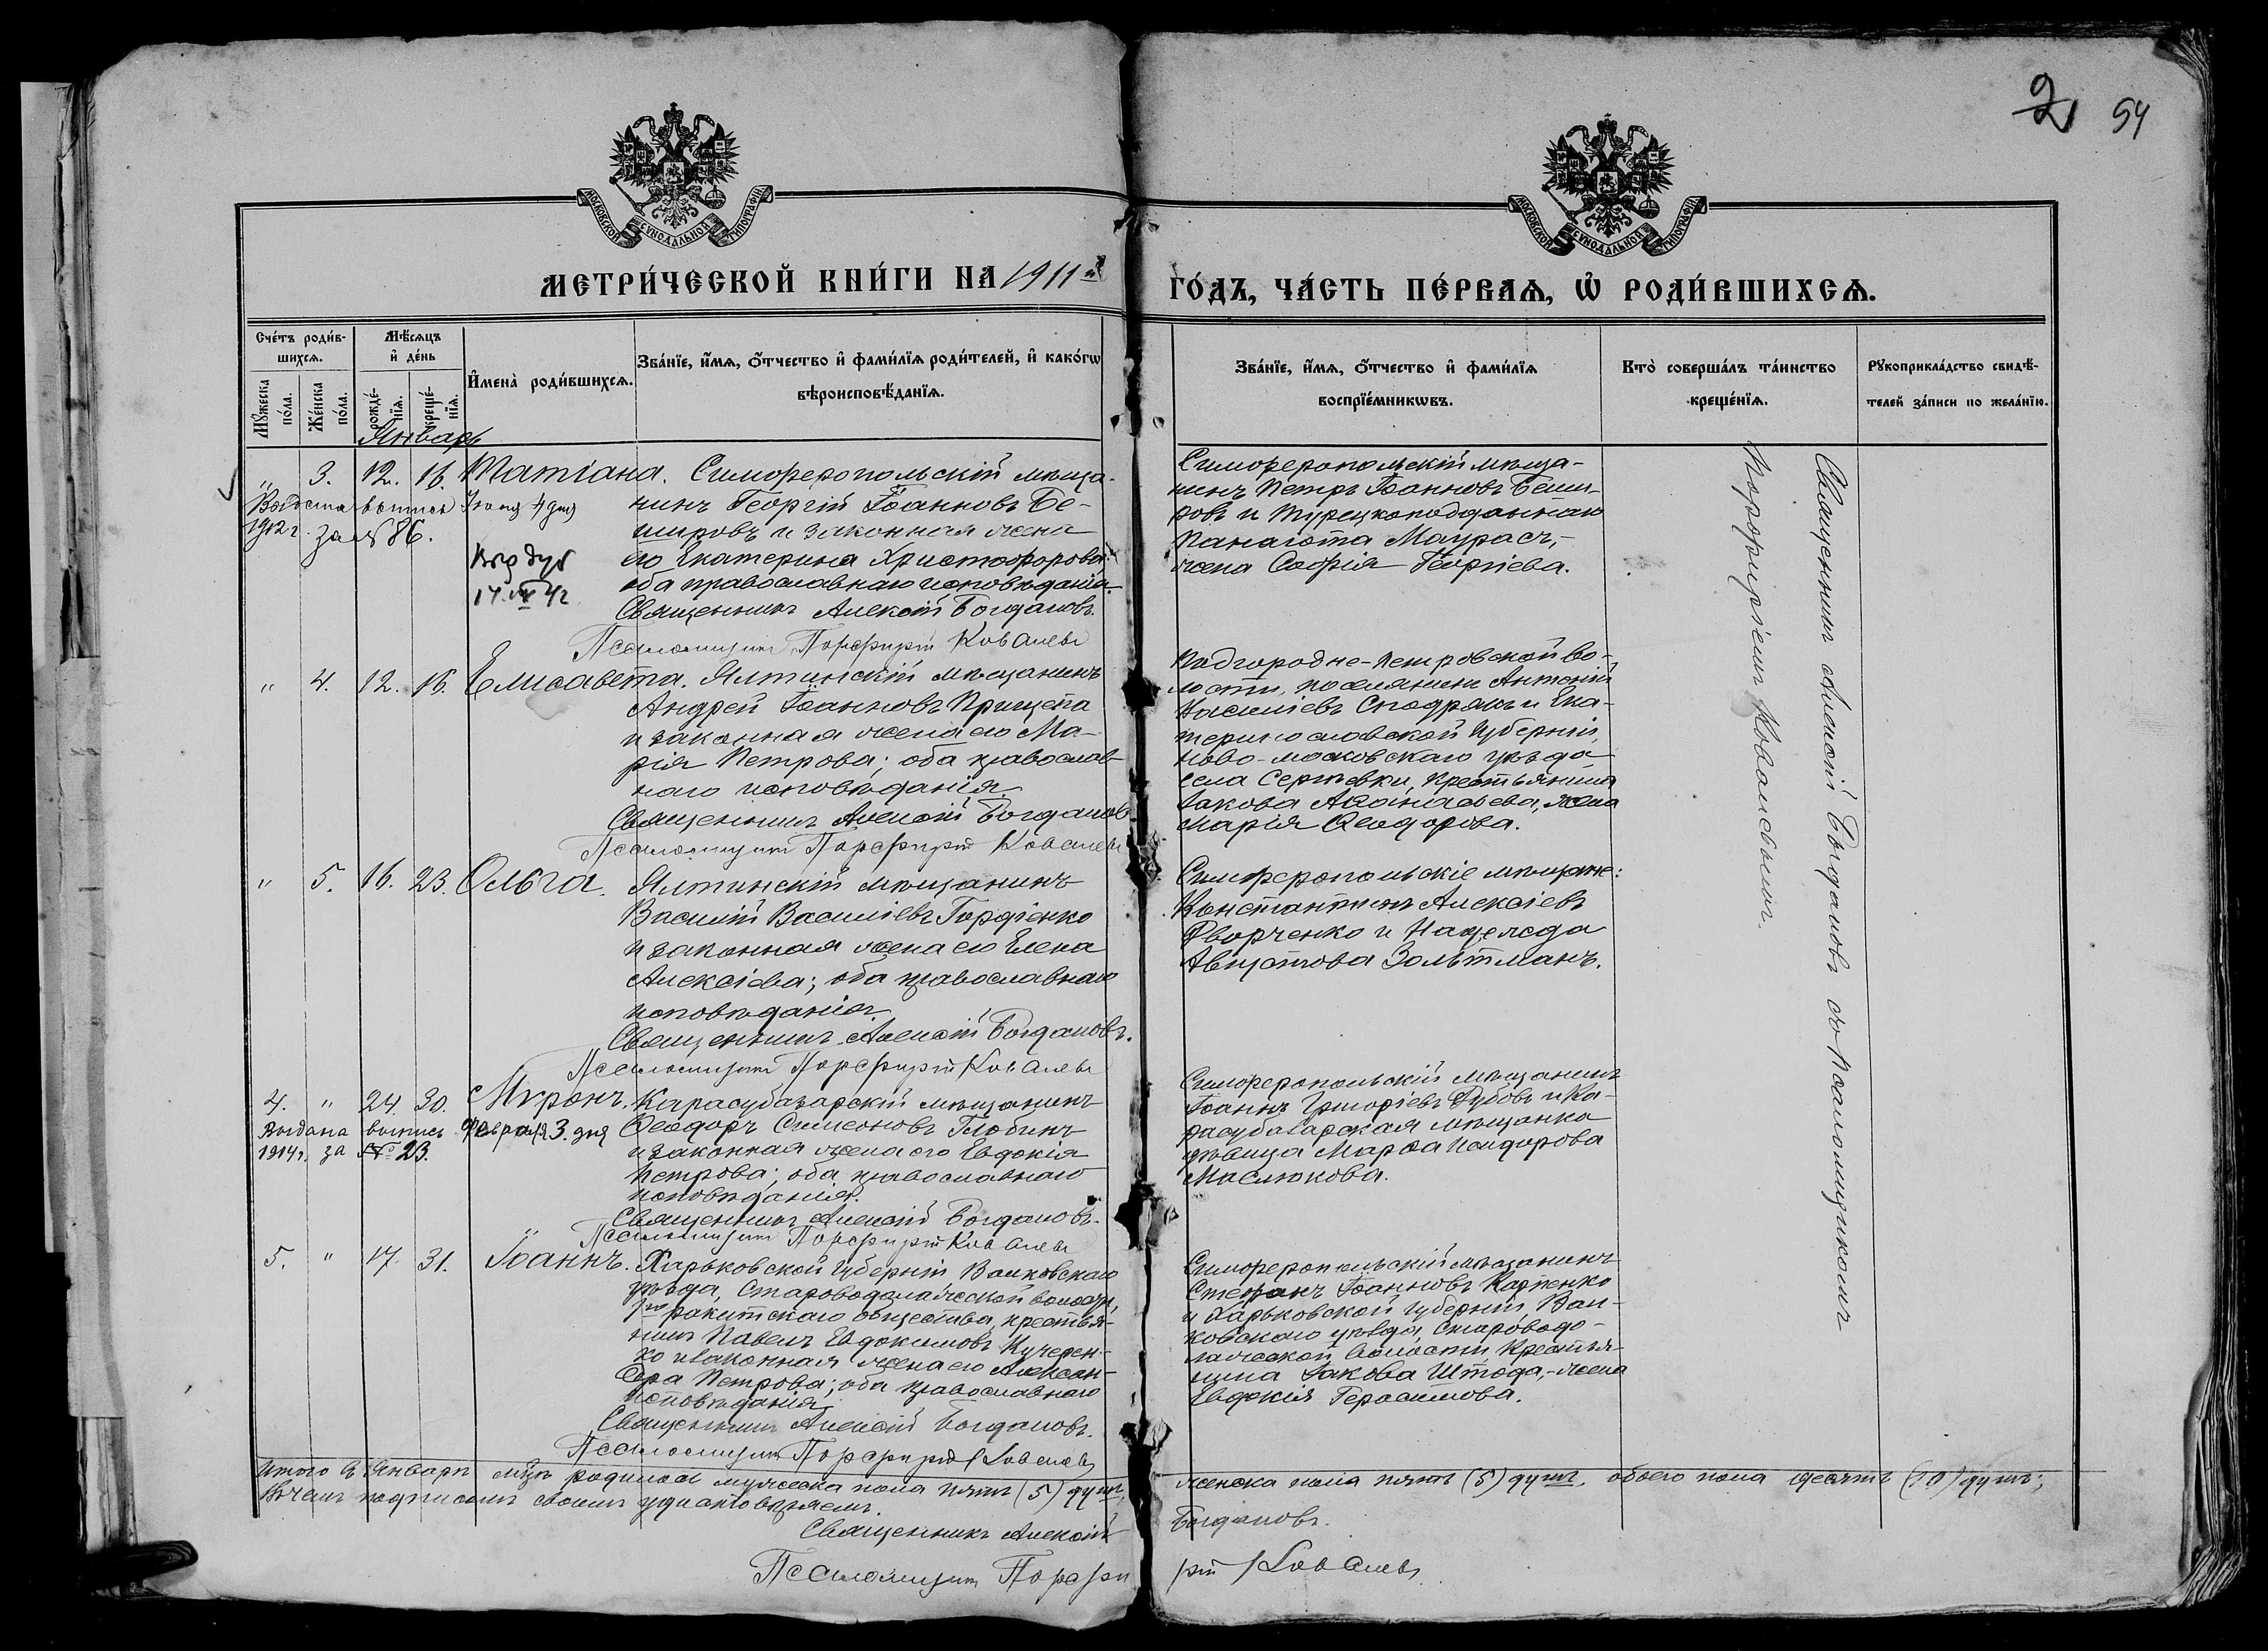 2 54
МОСКОВСКОЙ СѴНОДАЛЬНОЙ ТИПОГРАФІИ
МОСКОВСКОЙ СѴНОДАЛЬНОЙ ТИПОГРАФІИ
МЕТРИ́ЧЕСКОЙ КНИ́ГИ НА 1911й ГО́ДЪ, ЧА́СТЬ ПЕ́РВАѦ, Ѡ҆ РОДИ́ВШИХСѦ.
Сче́тъ роди́в-
шихсѧ.
Мꙋ́жеска по́ла.
Же́нска по́ла.
Мѣ́сѧцъ
и҆ де́нь
рожде́-
нїѧ.
креще́-
нїѧ.
И҆мена̀ роди́вшихсѧ.
Зва́нїе, и҆́мѧ, ѻ҆́тчество и҆ фами́лїѧ роди́телей, и҆ како́гѡ
вѣроисповѣ́данїѧ.
Зва́нїе, и҆́мѧ, ѻ҆́тчество и҆ фами́лїѧ
воспрїе́мникѡвъ.
Кто̀ соверша́лъ та́инство
креще́нїѧ.
Рꙋкоприкла́дство свидѣ́-
телей за́писи по жела́нїю.
Январь
" 3. 12. 16. Татіана. Симферопольскій мѣща-
нинъ Георгій Іоанновъ Бе-
шировъ и законная жена
его Екатерина Христофорова
оба православнаго исповѣданія.
Священникъ Алексій Богдановъ.
Псаломщикъ Порфирій Ковалевъ
Выдана выпись 4 дня
1912 г. за № 86.
Симферопольскій мѣща-
нинъ Петръ Іоанновъ Беши-
ровъ и турецкоподданнаго
Панаіота Маурасъ,-
жена Софія Георгіева.
" 4. 12. 16. Елисавета. Ялтинскій мѣщанинъ
Андрей Іоанновъ Прищепа
и законная жена его Ма-
рія Петрова; оба православ-
наго исповѣданія.
Священникъ Алексій Богдановъ
Псаломщикъ Порфирій Ковалевъ
Подгородне-Петровской во-
лости, поселянинъ Антоній
Василіевъ и Ека-
теринославской губерніи,
Ново-московскаго уѣзда
села Сергѣевки, крестьянина
Іакова Аѳанасьева, жена
Марія Ѳеодорова.
" 5. 16. 23. Ольга. Ялтинскій мѣщанинъ
Василій Василіевъ Гордіенко
и законная жена его Елена
Алексіева; оба православнаго
исповѣданія.
Священникъ Алексій Богдановъ.
Псаломщикъ Порфирій Ковалевъ
Симферопольскіе мѣщане:
Константинъ Алексіевъ
Дворченко и Надежда
Августова Зольтманъ.
4. " 24. 30. Миронъ. Карасубазарскій мѣщанинъ
Ѳеодоръ Симеоновъ Глобинъ
и законная жена его Евдокія
Петрова; оба православнаго
исповѣданія.
Священникъ Алексій Богдановъ.
Псаломщикъ Порфирій Ковалевъ
Выдана выпись Февраля 3. дня
1914 г. за № 23.
Симферопольскій мѣщанинъ
Іоаннъ Григоріевъ Дубовъ и Ка-
расубазарская мѣщанка
дѣвица Марѳа
Маслюкова.
5. " 17. 31. Іоаннъ. Харьковской губерніи, Валковскаго
уѣзда, Староводолажской волости,
ракитскаго общества, крестья-
нинъ Павелъ Евдокимовъ Кучерен-
ко и законная жена его Алексан-
дра Петрова; оба православнаго
исповѣданія.
Священникъ Алексій Богдановъ.
Псаломщикъ Порфирій Ковалевъ
Симферопольскій мѣщанинъ
Стефанъ Іоанновъ Карпенко
и Харьковской губерніи, Вал-
ковскаго уѣзда, Староводо-
лажской волости, крестья-
нина Іакова Штода,- жена
Евдокія Герасимова.
Священникъ Алексій Богдановъ съ псаломщикомъ
Порфиріемъ Ковалевымъ.
Итого въ Январѣ мѣсяцѣ родилось мужеска пола пять (5) душъ, женска пола пять (5) душъ, обоего пола десять (10) душъ;
въ чемъ подписомъ своимъ удостовѣряемъ.
Священникъ Алексій Богдановъ.
Псаломщикъ Порфирій Ковалевъ